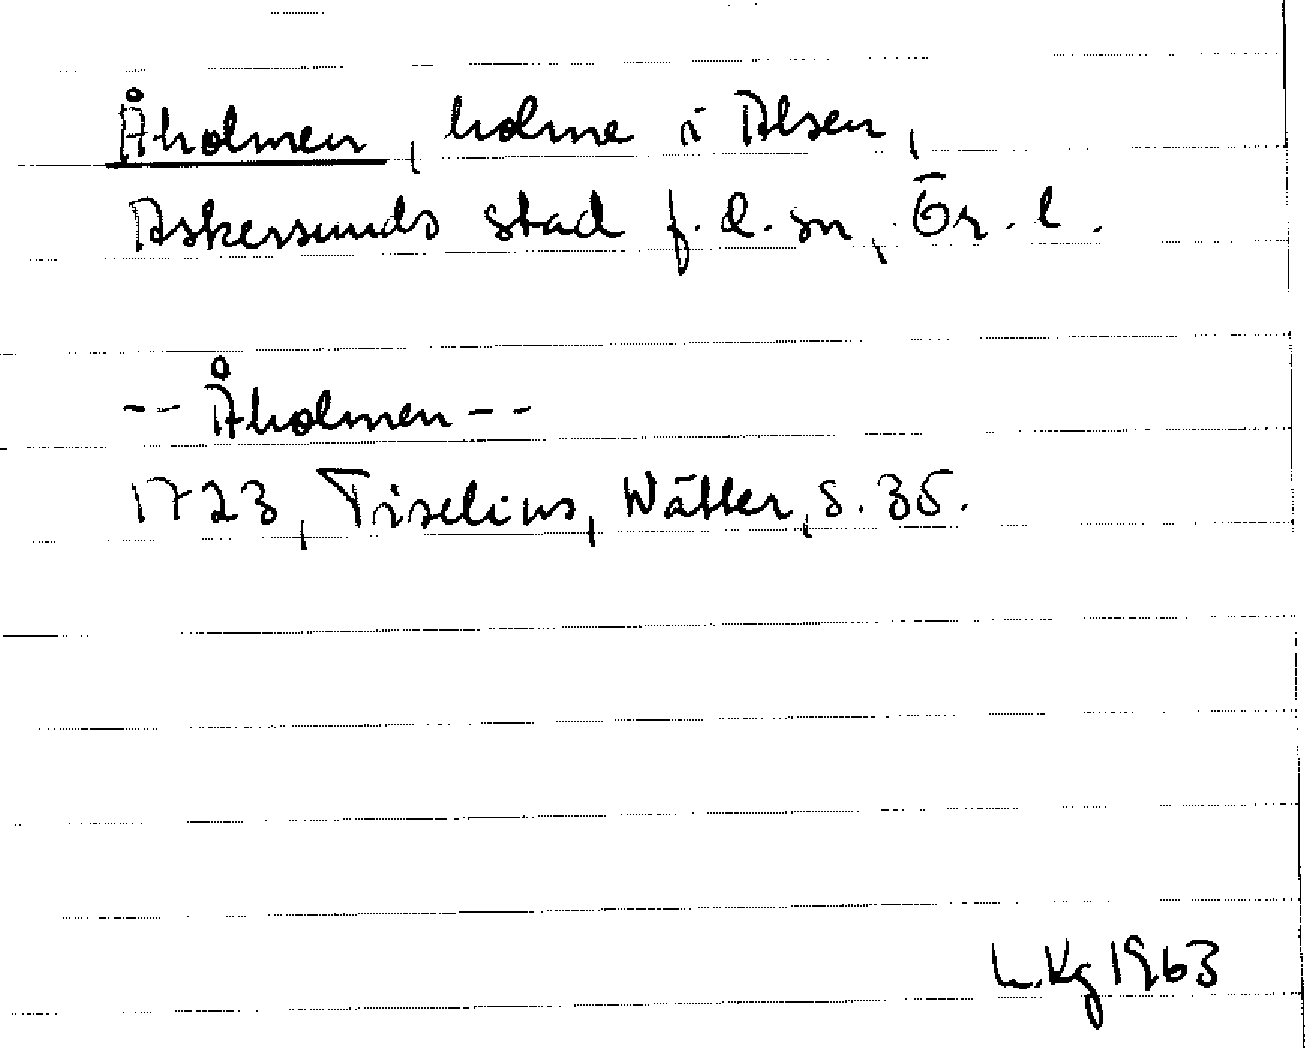 Åholmen, holme i Alsen,
Askersunds stad f.l.sn, Ör.l.
-- Åholmen --
1723, Tiselius, Wätter, s. 35.
L.Kg 1963